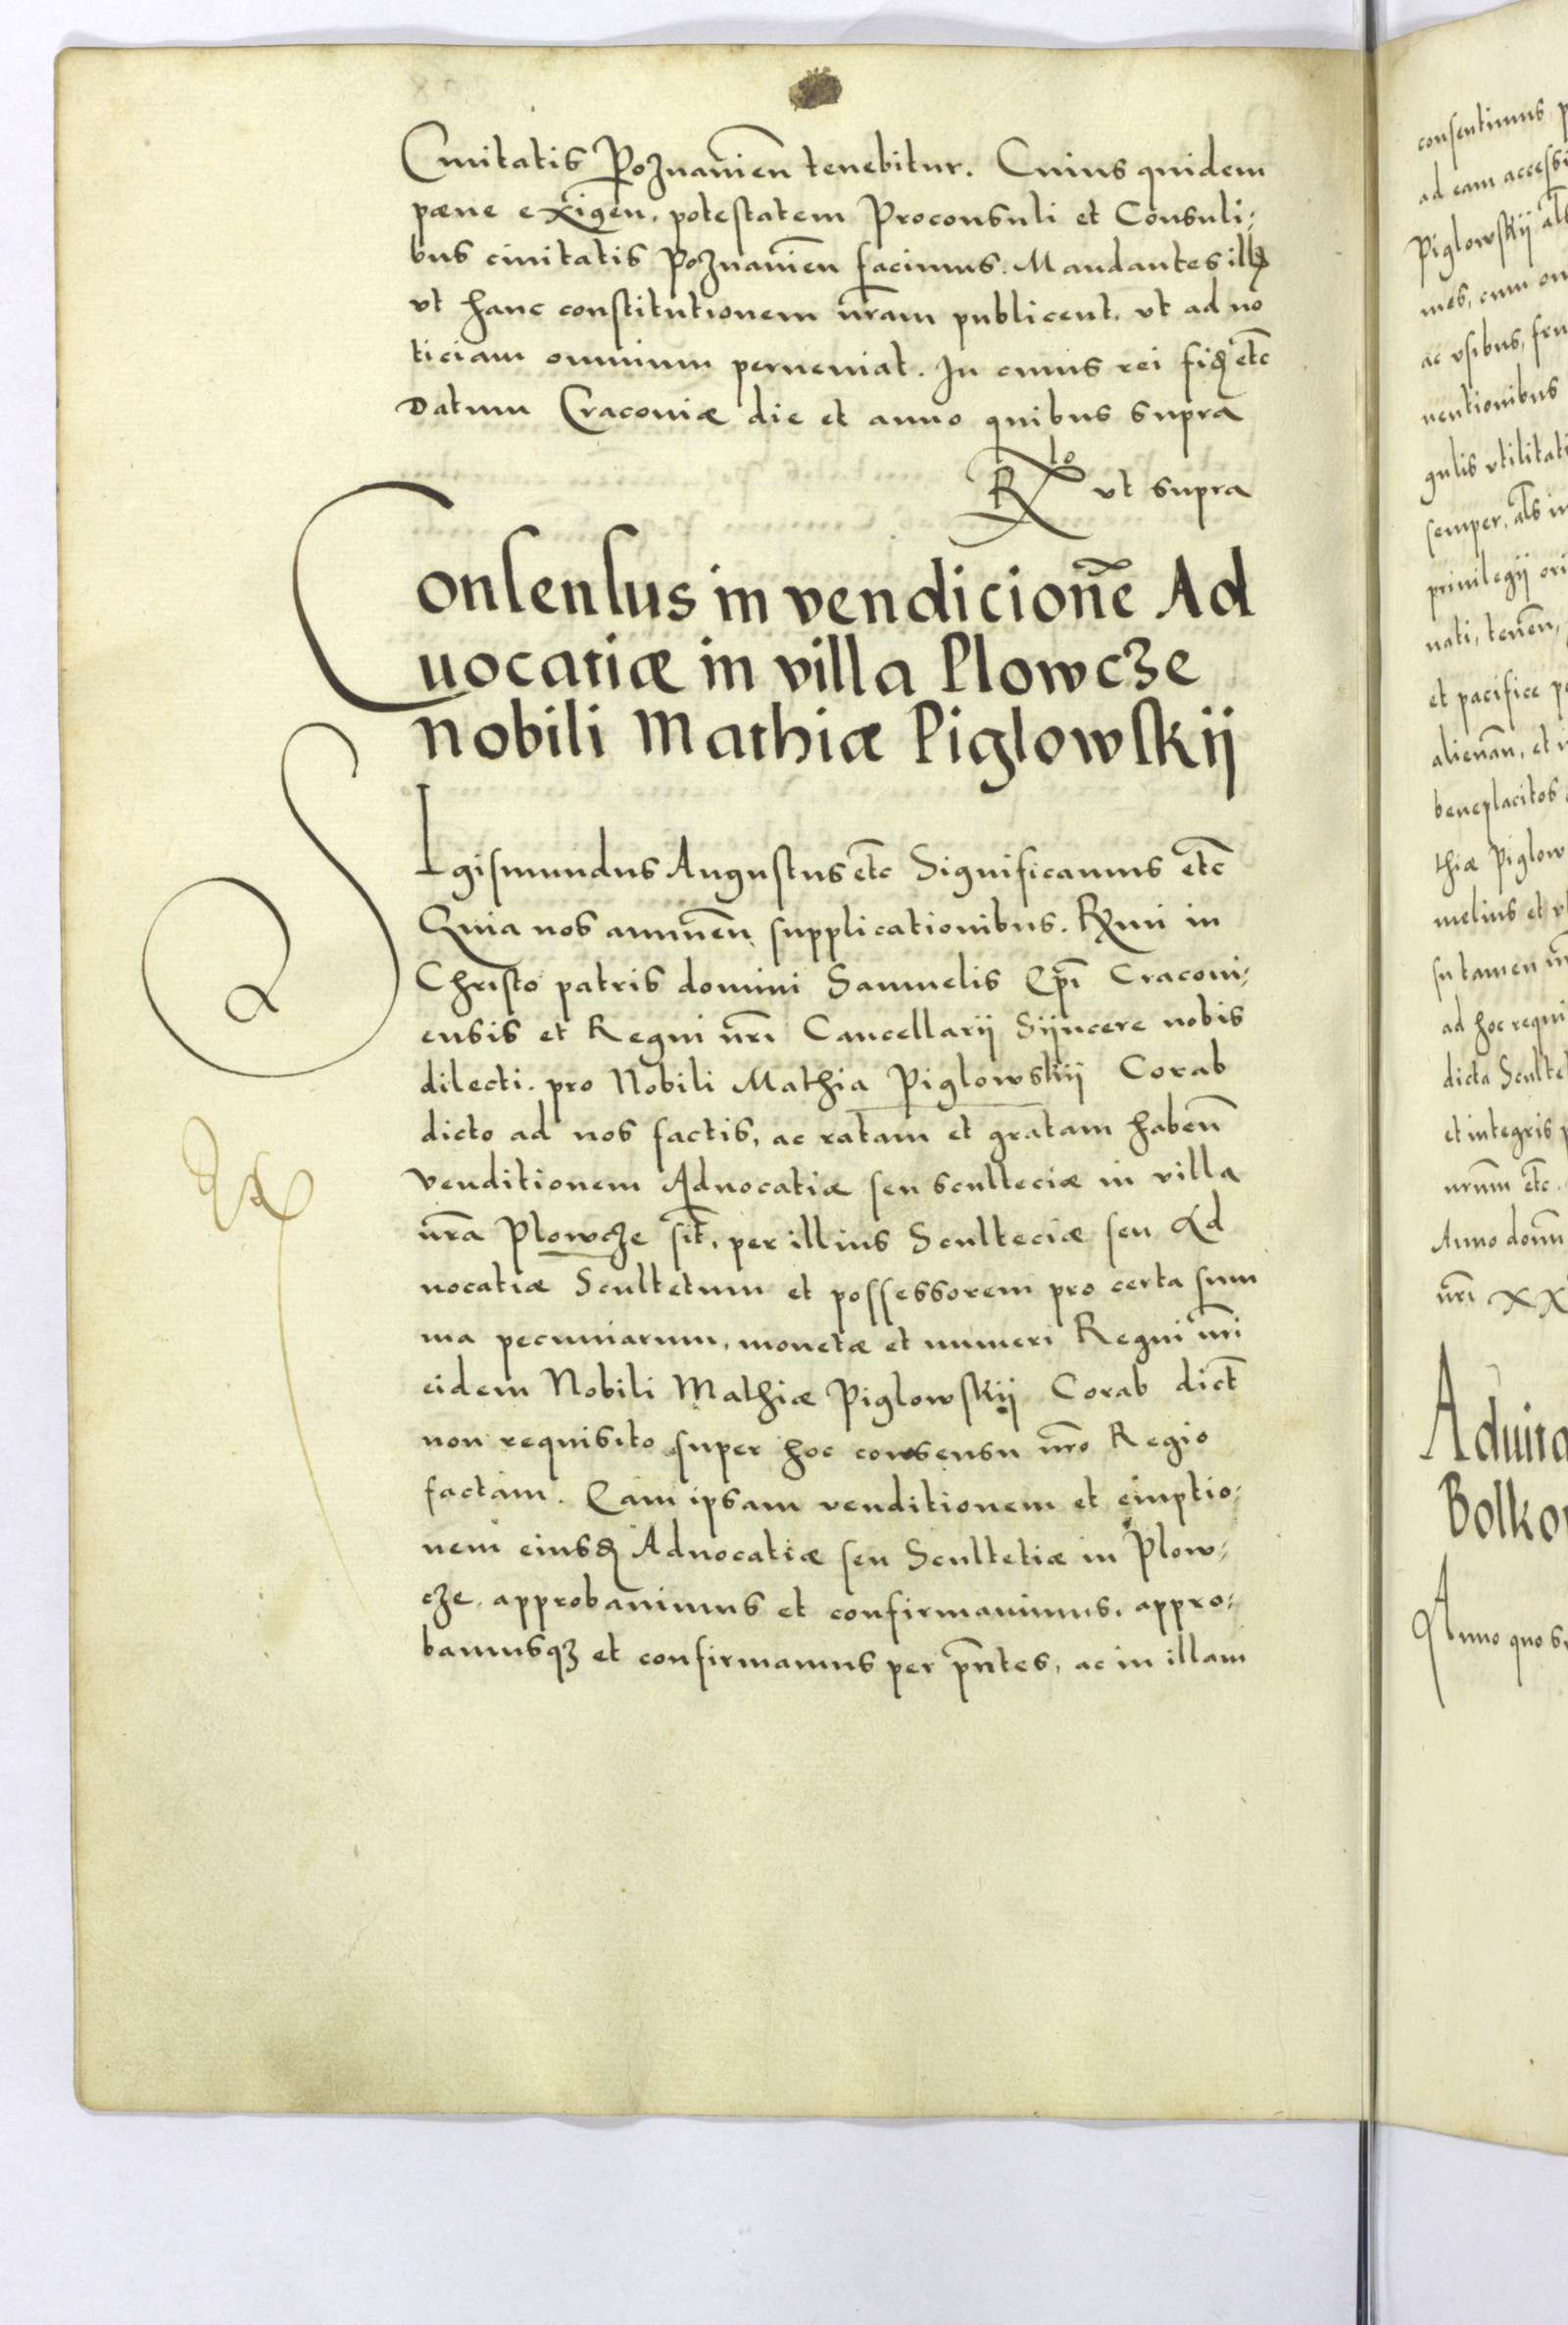 Ciuitatis Poznanien̄ tenebitur. Cuius quidem
pæne exigen̄. potestatem Proconsuli et Consuli-
bus ciuitatis Poznanien̄ facimus. Mandantes illis
vt hanc constitutionem nr̄am publicent, vt ad no
ticiam omnium perueniat. In cuius rei fid etc̄
Datum Cracouiæ die et anno quibus supra
Rlo vt supra
Consensus in vendicionē Ad
uocatiæ in villa Plowcze
nobili Mathiæ Piglowskij
SIgismundus Augustus etc̄ Significamus etc̄
Quia nos annuen̄ supplicationibus. Rmi in
Christo patris domini Samuelis Ep̄i Cracoui-
ensis et Regni nr̄i Cancellarij Sijncere nobis
dilecti. pro Nobili Mathia Piglowskij Corab
dicto ad nos factis, ac ratam et gratam haben̄
venditionem Aduocatiæ seu sculteciæ in villa
nr̄a Plowcze sit̄, per illius Sculteciæ seu Ad
uocatiæ Scultetum et possessorem pro certa sum
ma pecuniarum, monetæ et numeri Regni nr̄i
eidem Nobili Mathiæ Piglowskij Corab dict̄
non requisito super hoc consensu nr̄o Regio
factam. Eam ipsam venditionem et emptio-
nem eiusd Aduocatiæ seu Scultetiæ in Plow-
cze, approbauimus et confirmauimus, appro-
bamusqȝ et confirmamus per pn̄tes, ac in illam
consentimus
ad eam accessi
Piglowskij al̄s
mes, cum om
ac vsibus, fru
uentionibus
gulis vtilitati
semper, al̄s in
priuilegij ori
nati, tenen̄,
et pacifice po
alienan̄, et
beneplacitos
thiæ Piglow
melius et v
su tamen nr̄
ad hoc requi
dicta Sculte
et integris
nr̄um etc̄.
Anno domn̄
nr̄i XX
Aduita
Bolkow
Anno quo s